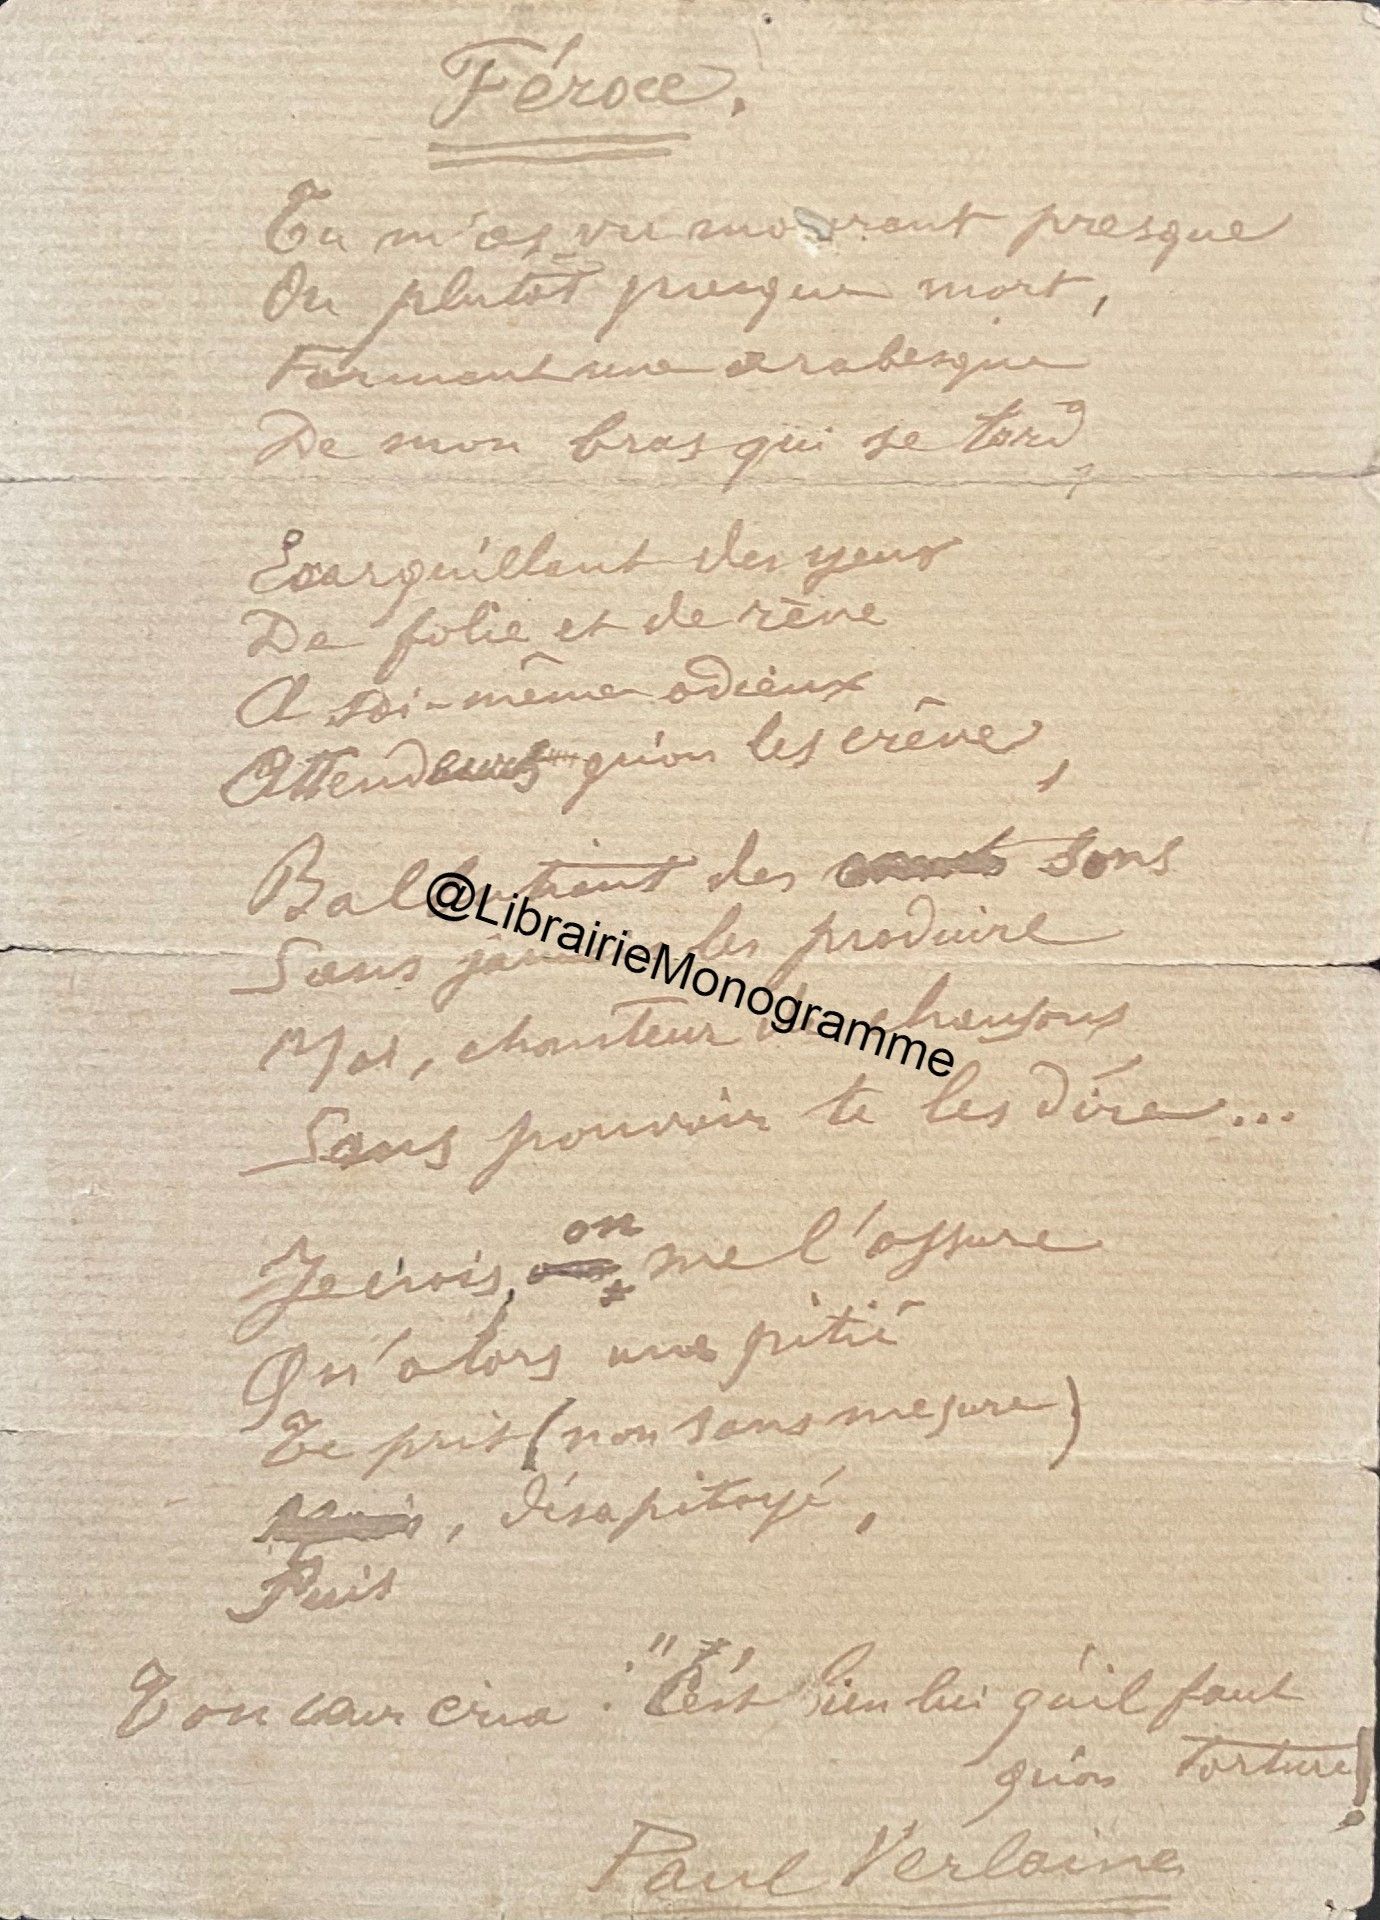 Féroce.
Tu m'as vu mourant presque
Ou plutôt presque mort,
Formant une arabesque
De mon bras qui se tord,
Ecarquillant des yeux
De folie et de rêve
A soi-même odieux
Attendant qu'on les crève,
Balbutiant des sons
Sans jamais les produire
Moi, chanteur de chansons
Sans pouvoir te les dire...
on
Je crois, me l'assure
Qu'alors une pitié
Te prit (non sans mesure)
, désapitoyé,
Puis
Ton cœur cria : "C'est bien lui qu'il faut
qu'on torture!
Paul Verlaine
@LibrairieMonogramme